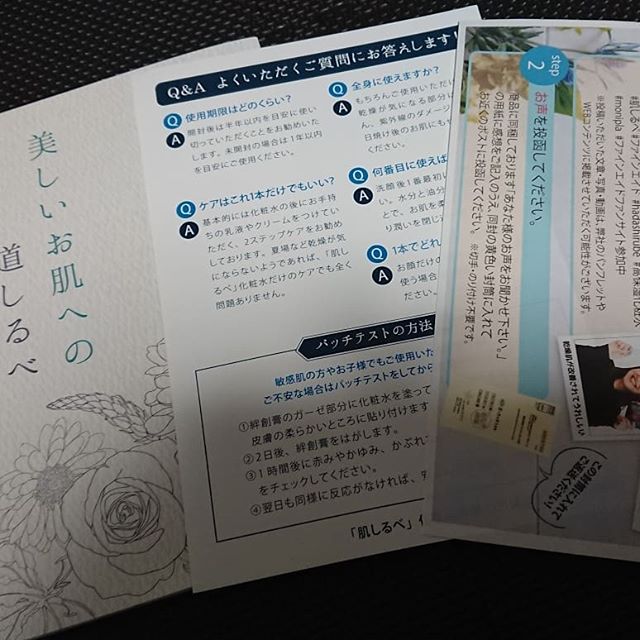 美しいお肌への
道しるべ
Q&A よくいただくご質問にお答えします!
Q 使用期限はどのくらい?
A 開封後は半年以内を目安に使い
切っていただくことをお勧めいた
します。未開封の場合は1年以内
を目安にご使用ください。
Q ケアはこれ1本だけでもいい?
A 基本的には化粧水の後にお手持
ちの乳液やクリームをつけてい
ただく、2ステップケアをお勧め
しております。夏場など乾燥が気
にならないようであれば、「肌し
るべ」化粧水だけのケアでも全く
問題ありません。
Q 全身に使えますか?
A もちろんご使用いただけ
乾燥が気になる部分
ん、紫外線のダメー
日焼け後のお肌にも
ください。
Q 何番目に使えば
A 洗顔後1番最初
い。水分と油分
とで、お肌を柔
り潤いを閉じ
Q 1本でどれ
A お顔だけの
使う場合
ださい。
パッチテストの方法
敏感肌の方やお子様でもご使用いた
ご不安な場合はパッチテストをしてから
①絆創膏のガーゼ部分に化粧水を塗って
皮膚の柔らかいところに貼り付けます
②2日後、絆創膏をはがします。
③1時間後に赤みやかゆみ、かぶれ
をチェックしてください。
④翌日も同様に反応がなければ、
「肌しるべ」
step
2
お声を投函してください。
商品に同梱しております「あなた様のお声をお聞かせ下さい。」
の用紙に感想をご記入のうえ、同封の黄色い封筒に入れて
お近くのポストに投函してください。 ※切手・のり付け不要です。
#monipla #ファインエイドファンサイト参加中
※投稿いただいた文章・写真・動画は、弊社のパンフレットや
WEBコンテンツに掲載させていただく可能性がございます。
この封筒に入れて
ご返送ください!